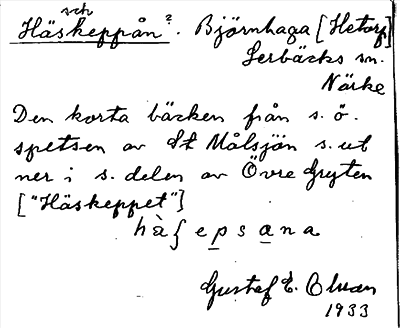 sch
Häskeppån?. Björnhaga [Hetorp]
Lerbäcks sn.
Närke
Den korta bäcken från s.ö.
spetsen av St Målsjön s. ut
ner i s. delen av Övre Gryten
["Häskeppet"]
hà
e p s a n a
Gustaf E.
1933